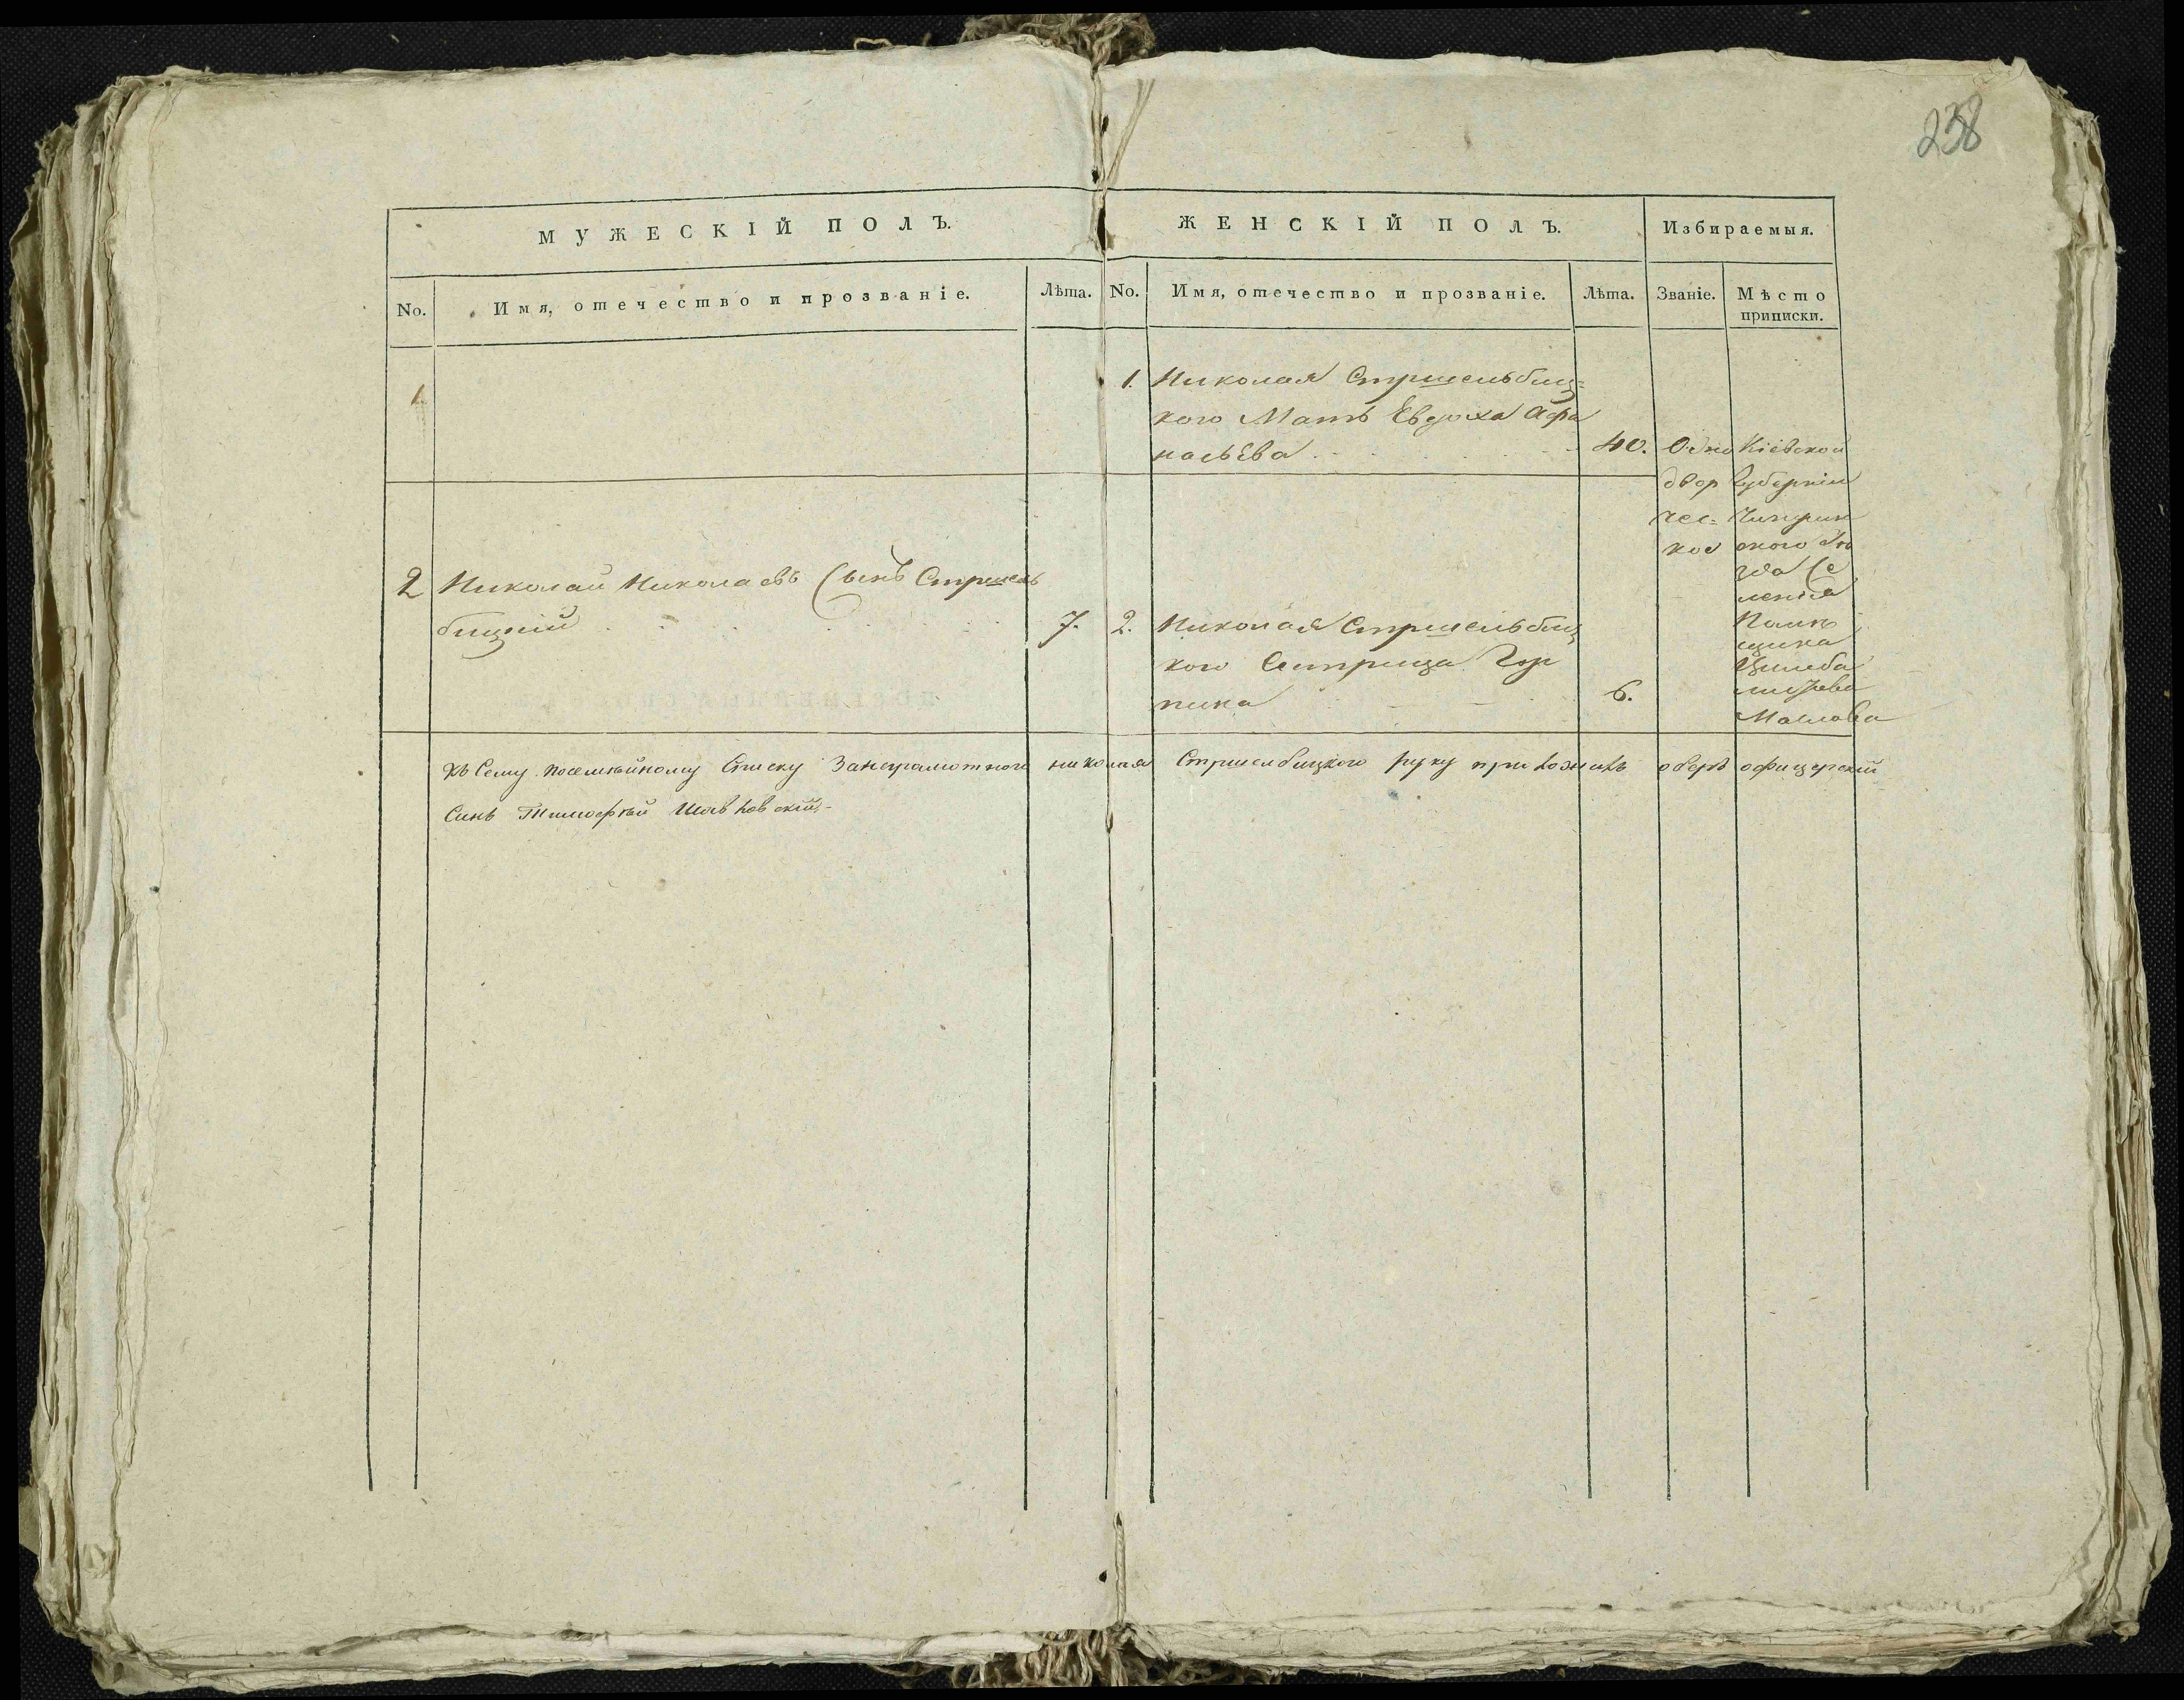 238
МУЖЕСКІЙ ПОЛЪ.
ЖЕНСКІЙ ПОЛЪ.
Избираемыя.
No.
Имя, отечество и прозваніе.
Лѣта.
No.
Имя, отечество и прозваніе.
Лѣта.
Званіе.
Мѣсто
приписки.
1.
1. Николая Стршельбиц=
кого Мать Евдоха Афа
насьева 40.
Одно
двор
чес=
кое
Кіевской
Губерніи
Чигрин
ского Уѣ
зда Се
ленія
Помѣ
щика
Маслова
2 Николай Николаевъ Сынъ Стршель
бицкій 7.
2. Николая Стршельбиц
кого Систрица Гор
пина 6.
Къ Сему посемѣйному Списку Занеграмотного николая Стршелбицкого руку приложилъ оберъ офицерскій
Синъ Тимофѣй